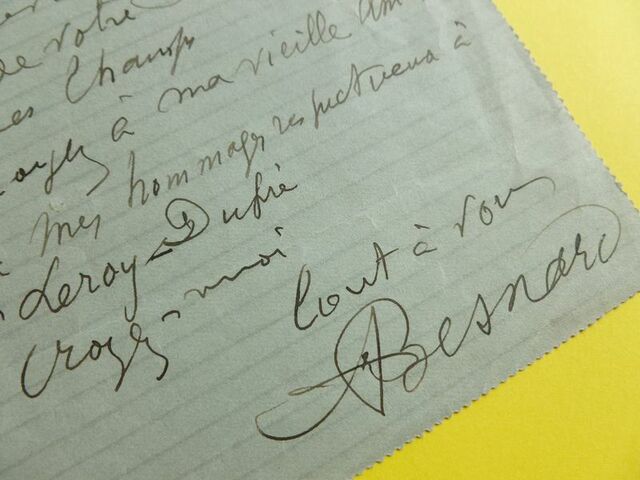 de votre
les Champs
croyez à ma vieille am
mes hommages respectueux à
Leroy-Dufré
Croyez-moi
tout à vous
ABesnard